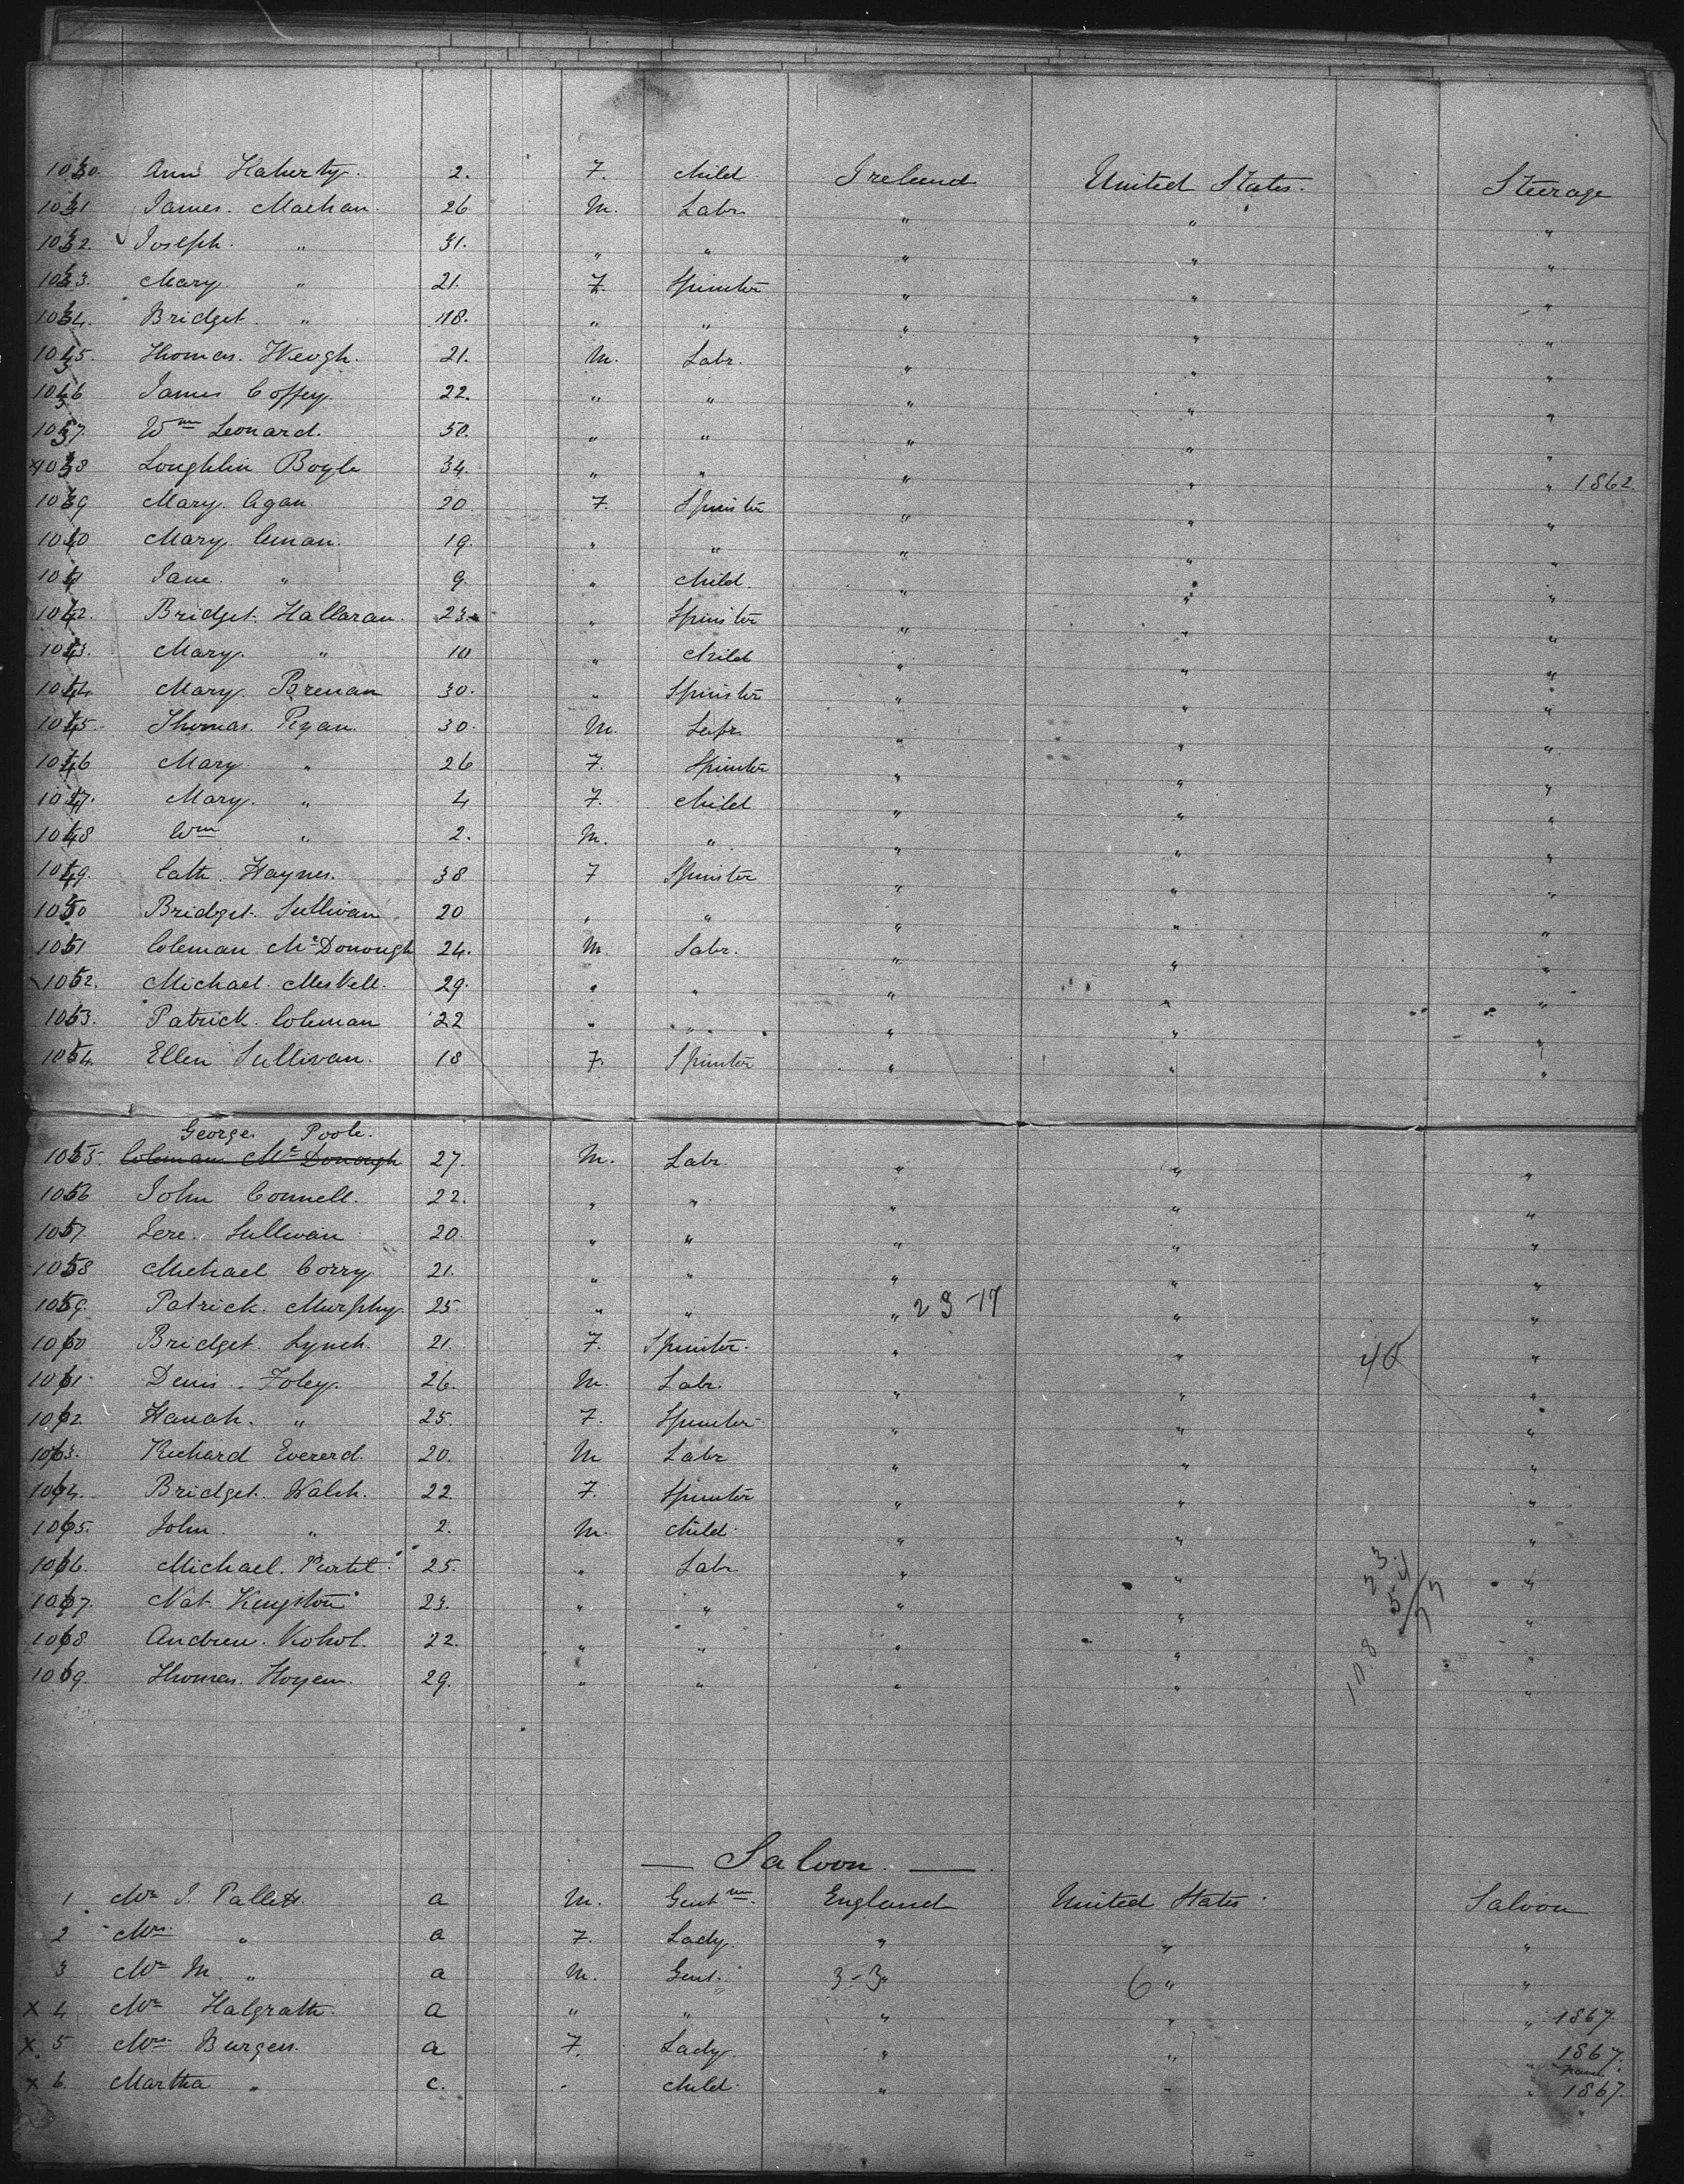 1030. Ann Flaherty. 2. F. child Ireland United States. Steerage
1031 James. Machan. 26 M. Labr " " "
1032. Joseph. " 31. " " " " "
1033. Mary " 21. F. Spinster " " "
1034. Bridget. " 18. " " " " "
1035. Thomas. Keogh. 21. M. Labr. " " "
1036 James Coffey. 22. " " " " "
1037. Wm Leonard. 50. " " " " "
1038 Loughlin Boyle 34. " " " " " 1862.
1039 Mary. Agan. 20 F. Spinster " " "
1040 Mary. 19. " " " " "
1041 Jane. " 9. " child. " " "
1042. Bridget. Hallaran. 23 " Spinster " " "
1043. Mary. " 10 " child " " "
1044. Mary. Brenan 30. " Spinster " " "
1045. Thomas. Ryan. 30. M. Labr. " " "
1046 Mary. " 26 F. Spinster " " "
1047. Mary. " 4 F. child " " "
1048 Wm " 2. M. " " " "
1049. Cath. Haynes. 38 F Spinster " " "
1050 Bridget. Sullivan 20 " " " " "
1051 Coleman McDonough 24. M. Labr. " " "
1052. Michael. Meskell. 29. " " " " "
1053. Patrick. Coleman 22 " " " " "
1054. Ellen Sullivan. 18 F. Spinster " " "
George. Poole.
1055. Coleman McDonough 27. M. Labr. " " "
1056 John Connell. 22. " " " " "
1057. Jere. Sullivan 20. " " " " "
1058 Michael Corry 21. " " " " "
1059. Patrick. Murphy. 25. " " " 23-17 " "
1060 Bridget. Lynch. 21. F. Spinster. " " 40 "
1061. Denis. Foley. 26. M. Labr. " " "
1062. Hanah. " 25. F. Spinster " " "
1063. Richard Evererd. 20. M Labr " " "
1064. Bridget. Walsh. 22. F. Spinster " " "
1065. John. " 2. M. child. " " "
1066. Michael. 25. " Labr " " 23. "
1067. Nat. Kingston 23. " " " " 54/77 "
1068. Andrew. Kohol. 22. " " " " 108 "
1069. Thomas. 29. " " " " "
— Saloon. —
1. Mr J. Pallett. a M. Gentm. England United States. Saloon
2 Mrs. " a F. Lady. " " "
3 Mr M. " a M. Gent. 3-3 " 6 " "
X 4 Mr Halgrath. a " " " " " 1867.
X 5 Mrs Burgess. a F. Lady. " " " 1867.
X 6. Martha " c. " child. " " " 1867.